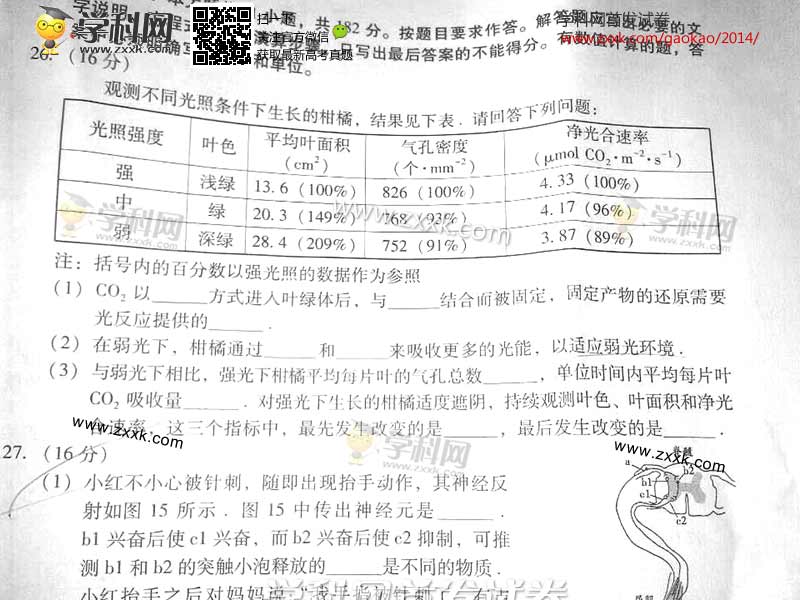 共 182 分。按题目要求作答。解答题
学科网首发试卷
www.zxxk.com/gaokao/2014/
扫一扫
关注官方微信
获取最新高考真题
只写出最后答案的不能得分。有数值计算的题，答
和单位。
26.（16 分）
观测不同光照条件下生长的柑橘，结果见下表．请回答下列问题：
光照强度 叶色 平均叶面积（cm²） 气孔密度（个·mm⁻²） 净光合速率（μmol CO₂·m⁻²·s⁻¹）
强 浅绿 13.6（100%） 826（100%） 4.33（100%）
中 绿 20.3（149%） 768（93%） 4.17（96%）
弱 深绿 28.4（209%） 752（91%） 3.87（89%）
注：括号内的百分数以强光照的数据作为参照
（1）CO₂ 以______方式进入叶绿体后，与______结合而被固定，固定产物的还原需要
光反应提供的______．
（2）在弱光下，柑橘通过______和______来吸收更多的光能，以适应弱光环境．
（3）与弱光下相比，强光下柑橘平均每片叶的气孔总数______，单位时间内平均每片叶
CO₂ 吸收量______．对强光下生长的柑橘适度遮阴，持续观测叶色、叶面积和净光
合速率，这三个指标中，最先发生改变的是______，最后发生改变的是______．
27.（16 分）
（1）小红不小心被针刺，随即出现抬手动作，其神经反
射如图 15 所示．图 15 中传出神经元是______．
b1 兴奋后使 c1 兴奋，而 b2 兴奋后使 c2 抑制，可推
测 b1 和 b2 的突触小泡释放的______是不同的物质．
小红抬手之后对妈妈说
a
b1
b2
c1
c2
学科网
www.zxxk.com
学科网首发试卷